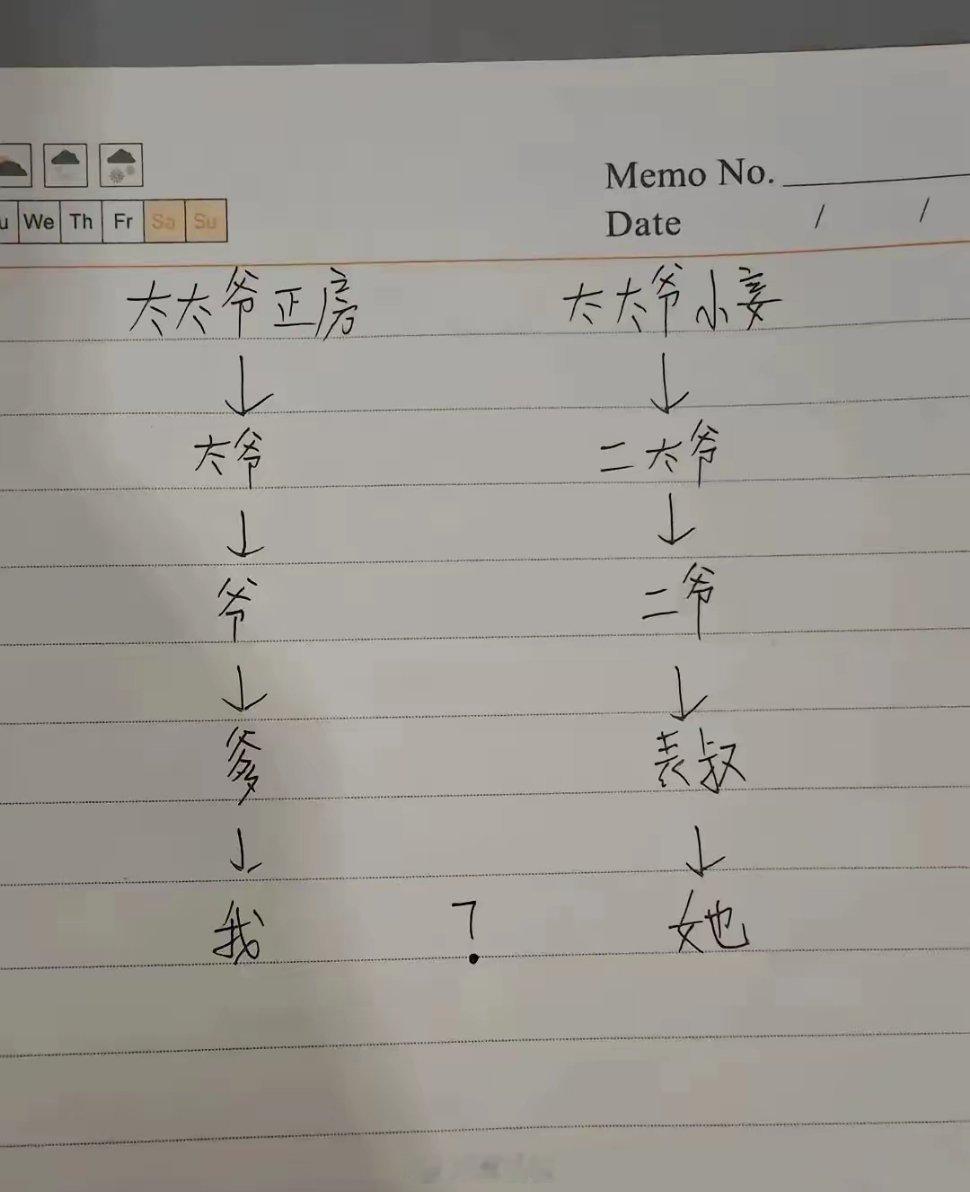 u We Th Fr Sa Su
Memo No.
Date / /
太太爷正房 太太爷小妾
太爷 二太爷
爷 二爷
爹 表叔
我 ? 她